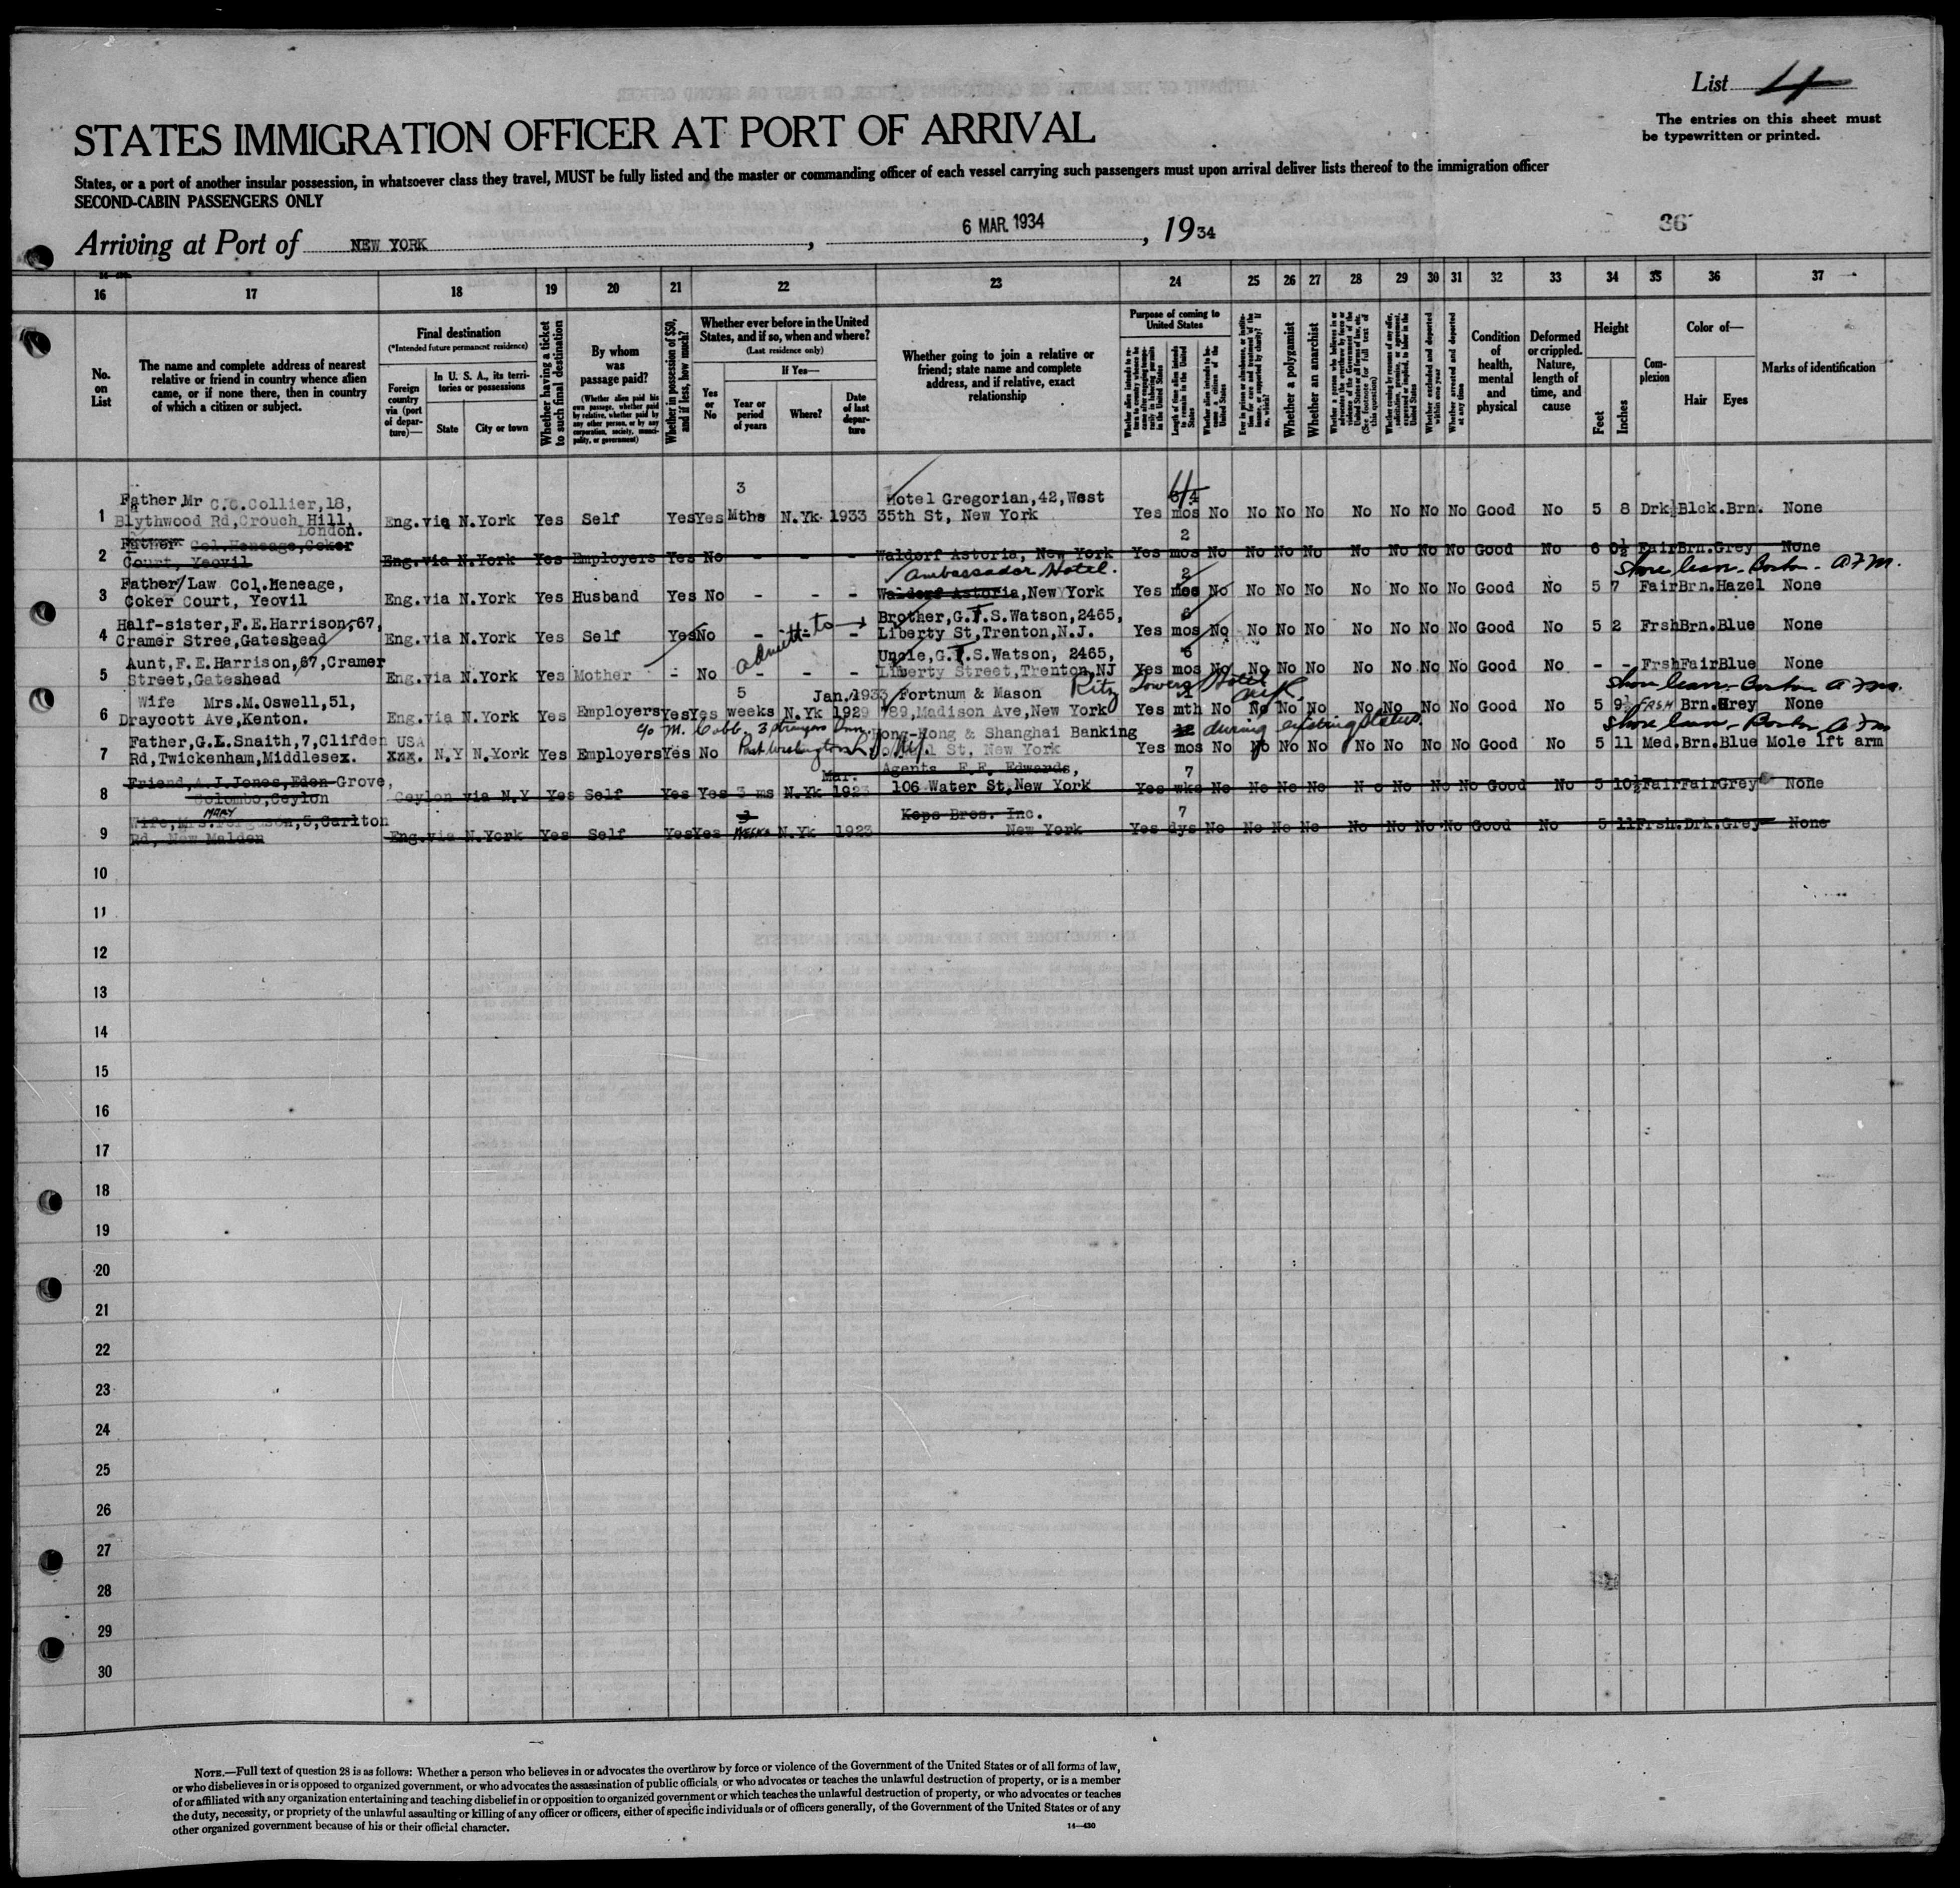 List 4
The entries on this sheet must
be typewritten or printed.
STATES IMMIGRATION OFFICER AT PORT OF ARRIVAL
States, or a port of another insular possession, in whatsoever class they travel, MUST be fully listed and the master or commanding officer of each vessel carrying such passengers must upon arrival deliver lists thereof to the immigration officer
SECOND-CABIN PASSENGERS ONLY
Arriving at Port of NEW YORK, 6 MAR. 1934, 1934
36
16 17 18 19 20 21 22 23 24 25 26 27 28 29 30 31 32 33 34 35 36 37
No. on List
The name and complete address of nearest
relative or friend in country whence alien
came, or if none there, then in country
of which a citizen or subject.
Final destination
(*Intended future permanent residence)
Foreign country via (port of departure)—
In U. S. A., its territories or possessions
State
City or town
Whether having a ticket to such final destination
By whom was passage paid?
(Whether alien paid his own passage, whether paid by relative, whether paid by any other person, or by any corporation, society, municipality, or government)
Whether in possession of $50, and if less, how much?
Whether ever before in the United
States, and if so, when and where?
(Last residence only)
Yes or No
If Yes—
Year or period of years
Where?
Date of last departure
Whether going to join a relative or
friend; state name and complete
address, and if relative, exact
relationship
Purpose of coming to United States
Length of time alien intends to remain in the United States
Whether alien intends to become a citizen of the United States
Whether a polygamist
Whether an anarchist
Whether excluded and deported within one year
Whether arrested and deported at any time
Condition of health, mental and physical
Deformed or crippled. Nature, length of time, and cause
Height
Feet
Inches
Complexion
Color of—
Hair
Eyes
Marks of identification
1 Father Mr C.C.Collier,18,
Blythwood Rd,Crouch Hill,
London.
Eng.via N.York Yes Self Yes Yes 3 Mths N.Yk 1933 Hotel Gregorian,42,West
35th St, New York
Yes mos No No No No No No No No Good No 5 8 Drk Blck. Brn. None
2 Father Col.Heneage,Coker
Court, Yeovil
Eng.via N.York Yes Employers Yes No - - - Waldorf Astoria, New York Yes 2 mos No No No No No No No No Good No 6 0½ Fair Brn. Grey None
Ambassador Hotel.
Shore leave - Boston - A F M.
3 Father/Law Col.Heneage,
Coker Court, Yeovil
Eng.via N.York Yes Husband Yes No - - - Waldorf Astoria,New York Yes 2 mos No No No No No No No No Good No 5 7 Fair Brn. Hazel None
4 Half-sister,F.E.Harrison,67,
Cramer Stree,Gateshead
Eng.via N.York Yes Self Yes No - - - Brother,G.T.S.Watson,2465,
Liberty St,Trenton,N.J.
Yes 6 mos No No No No No No No No Good No 5 2 Frsh Brn. Blue None
admitted to
5 Aunt,F.E.Harrison,67,Cramer
Street,Gateshead
Eng.via N.York Yes Mother - No - - - Uncle,G.T.S.Watson, 2465,
Liberty Street,Trenton,NJ
Yes 6 mos No No No No No No No No Good No - - Frsh Fair Blue None
Ritz Towers Hotel
N.Y.
Shore leave - Boston A F M.
6 Wife Mrs.M.Oswell,51,
Draycott Ave,Kenton.
Eng.via N.York Yes Employers Yes Yes 5 weeks N.Yk Jan.1933 1929 Fortnum & Mason
789,Madison Ave,New York
Yes mth No No No No No No No No Good No 5 9½ FRSH Brn. Grey None
c/o M. Cobb,
Port Washington L.I. N.Y.
during existing status
Shore leave - Boston A F M
7 Father,G.L.Snaith,7,Clifden
Rd,Twickenham,Middlesex.
USA N.Y N.York Yes Employers Yes No Hong-Kong & Shanghai Banking
St, New York
Yes mos No No No No No No No No Good No 5 11 Med. Brn. Blue Mole lft arm
8 Friend,A.J.Jones,Eden Grove,
Colombo,Ceylon
Ceylon via N.Y Yes Self Yes Yes 3 ms N.Yk Mar. 1923 Agents F.E. Edwards,
106 Water St,New York
Yes 7 wks No No No No No No No No Good No 5 10½ Fair Fair Grey None
9 Wife,Mrs. MARY Ferguson,5,Carlton
Rd, New Malden
Eng.via N.York Yes Self Yes Yes 3 weeks N.Yk 1923 Keps Bros. Inc.
New York
Yes 7 dys No No No No No No No No Good No 5 11 Frsh. Drk. Grey None
10
11
12
13
14
15
16
17
18
19
20
21
22
23
24
25
26
27
28
29
30
NOTE.—Full text of question 28 is as follows: Whether a person who believes in or advocates the overthrow by force or violence of the Government of the United States or of all forms of law,
or who disbelieves in or is opposed to organized government, or who advocates the assassination of public officials, or who advocates or teaches the unlawful destruction of property, or is a member
of or affiliated with any organization entertaining and teaching disbelief in or opposition to organized government or which teaches the unlawful destruction of property, or who advocates or teaches
the duty, necessity, or propriety of the unlawful assaulting or killing of any officer or officers, either of specific individuals or of officers generally, of the Government of the United States or of any
other organized government because of his or their official character.
14—430